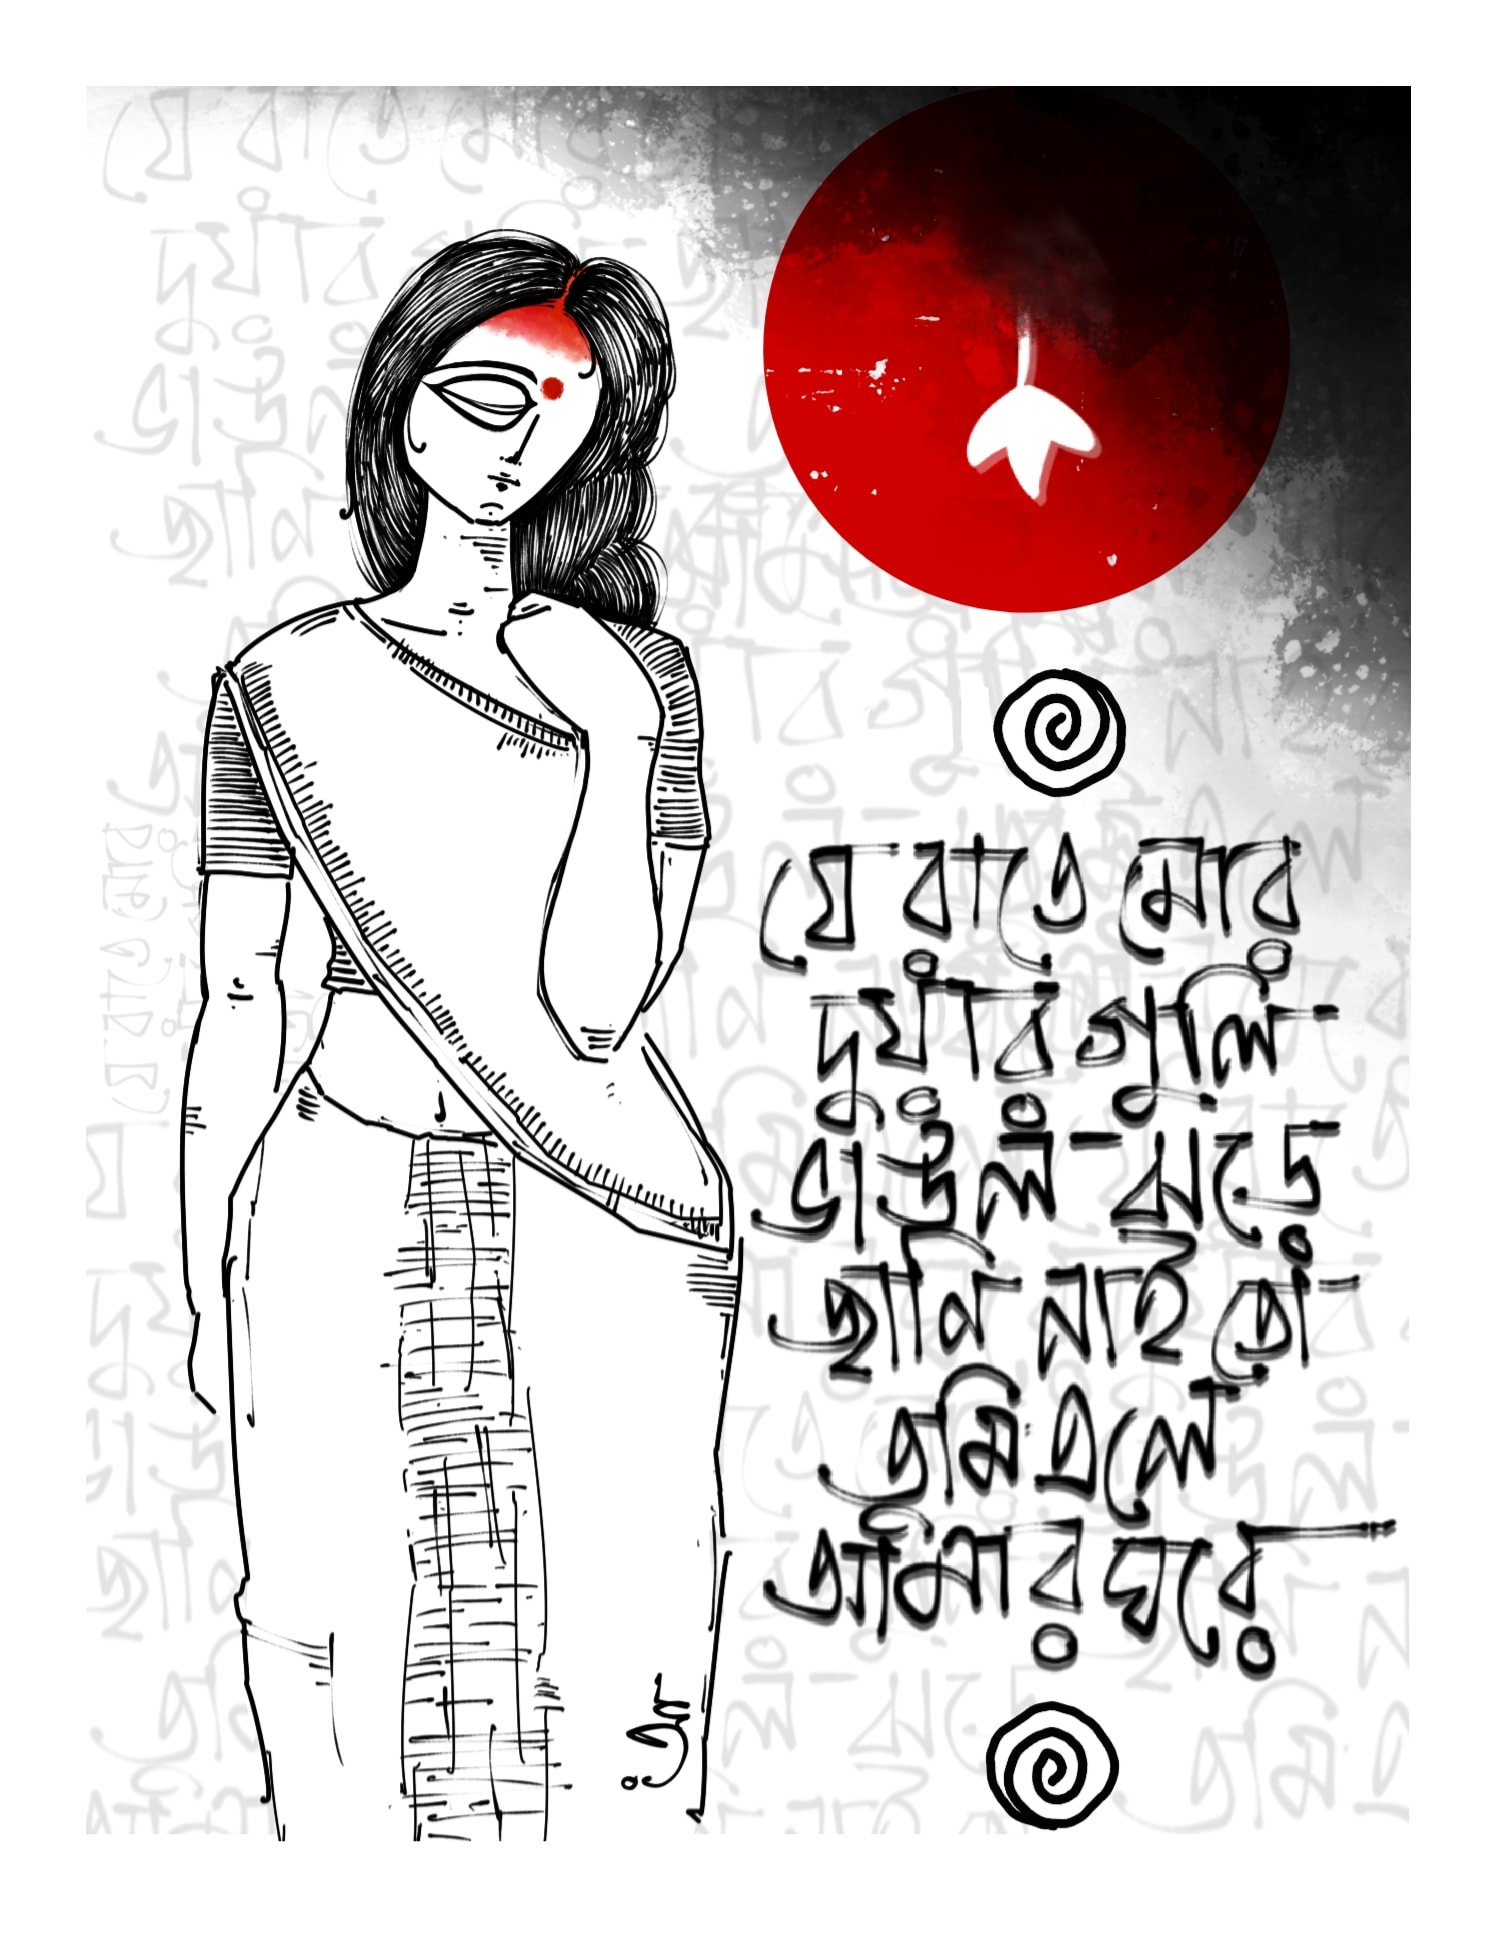 যে রাতে মোর
দুয়ার গুলি
ভাঙল ঝড়ে
জানি নাই তো
তুমি এলে
আমার ঘরে